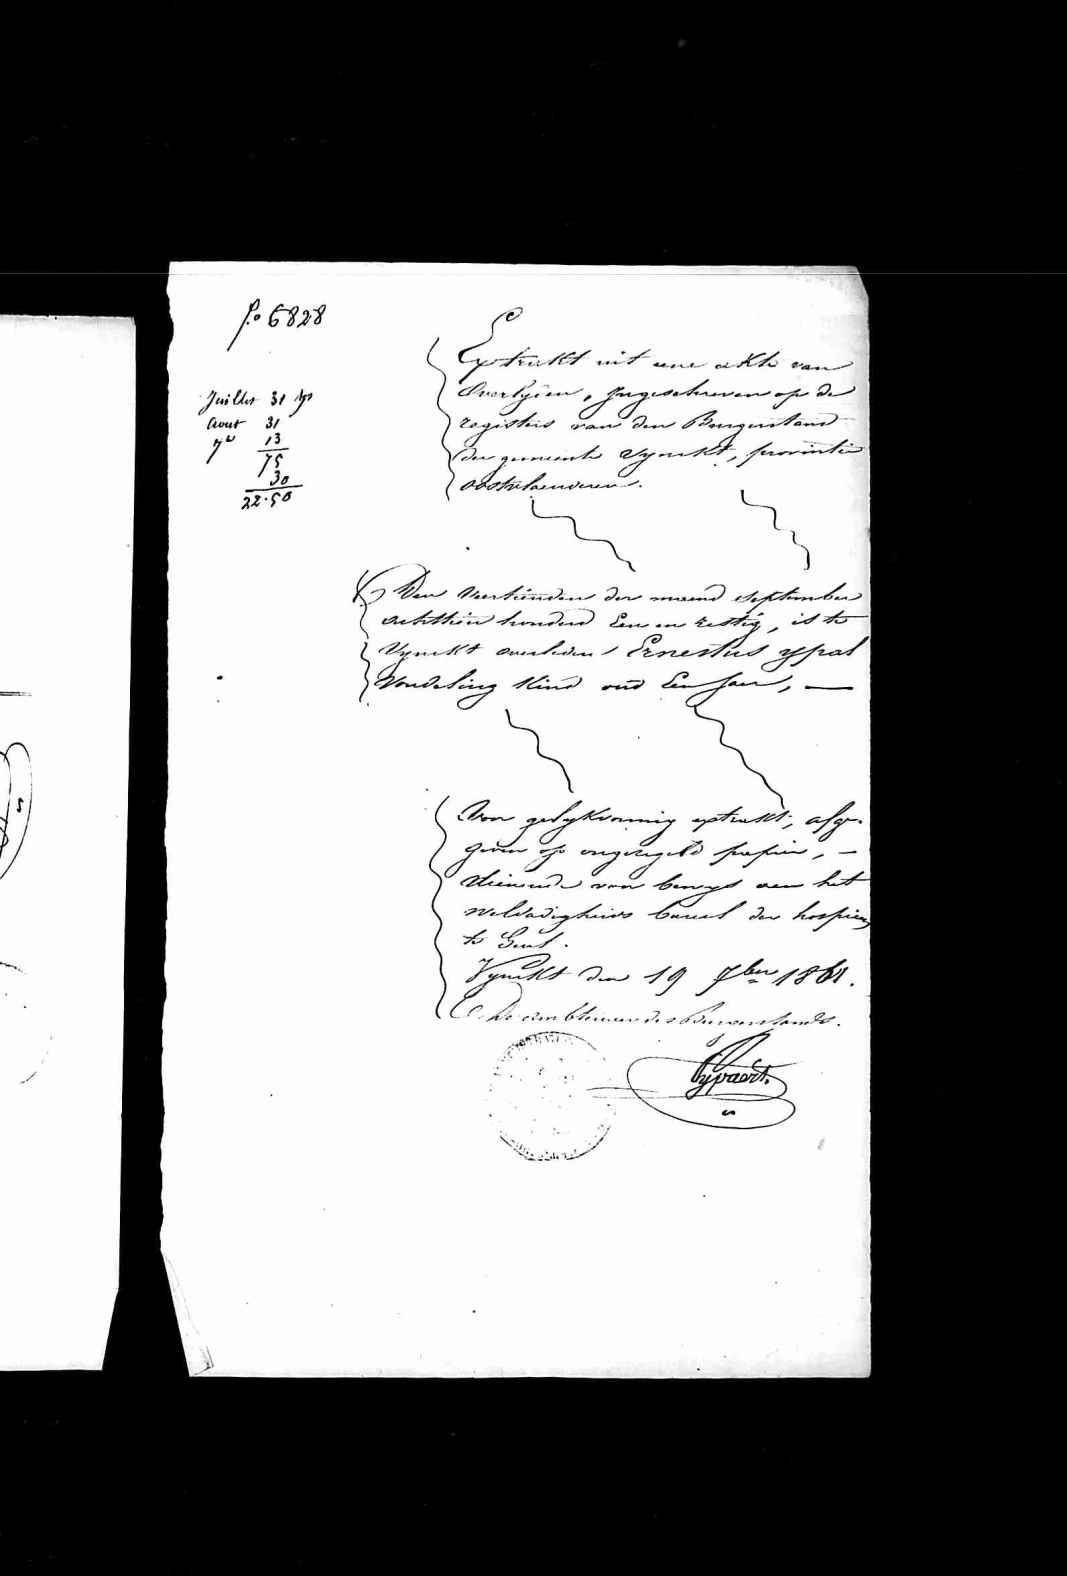 fo 6828
Juillet 31 jrs
Aout 31
7bre 13
75
30
22.50
Extrakt uit eene akte van
Overlyden, Ingeschreven op de
registers van den Burgerstand
der gemeente Vynckt, provintie
oostvlaenderen.
Den Veertienden der maend september
achttien honderd Een en zestig, is te
Vynckt overleden Ernestus ypal
Vondeling Kind oud Een Jaer, —
Voor gelykvormig extrakt, afge-
geven op ongezegeld papier, —
dienende voor bewys aen het
weldadigheids bureel der hospicen
te Gent.
Vynckt den 19 7ber 1861.
De ambtenaer des Burgerstands.